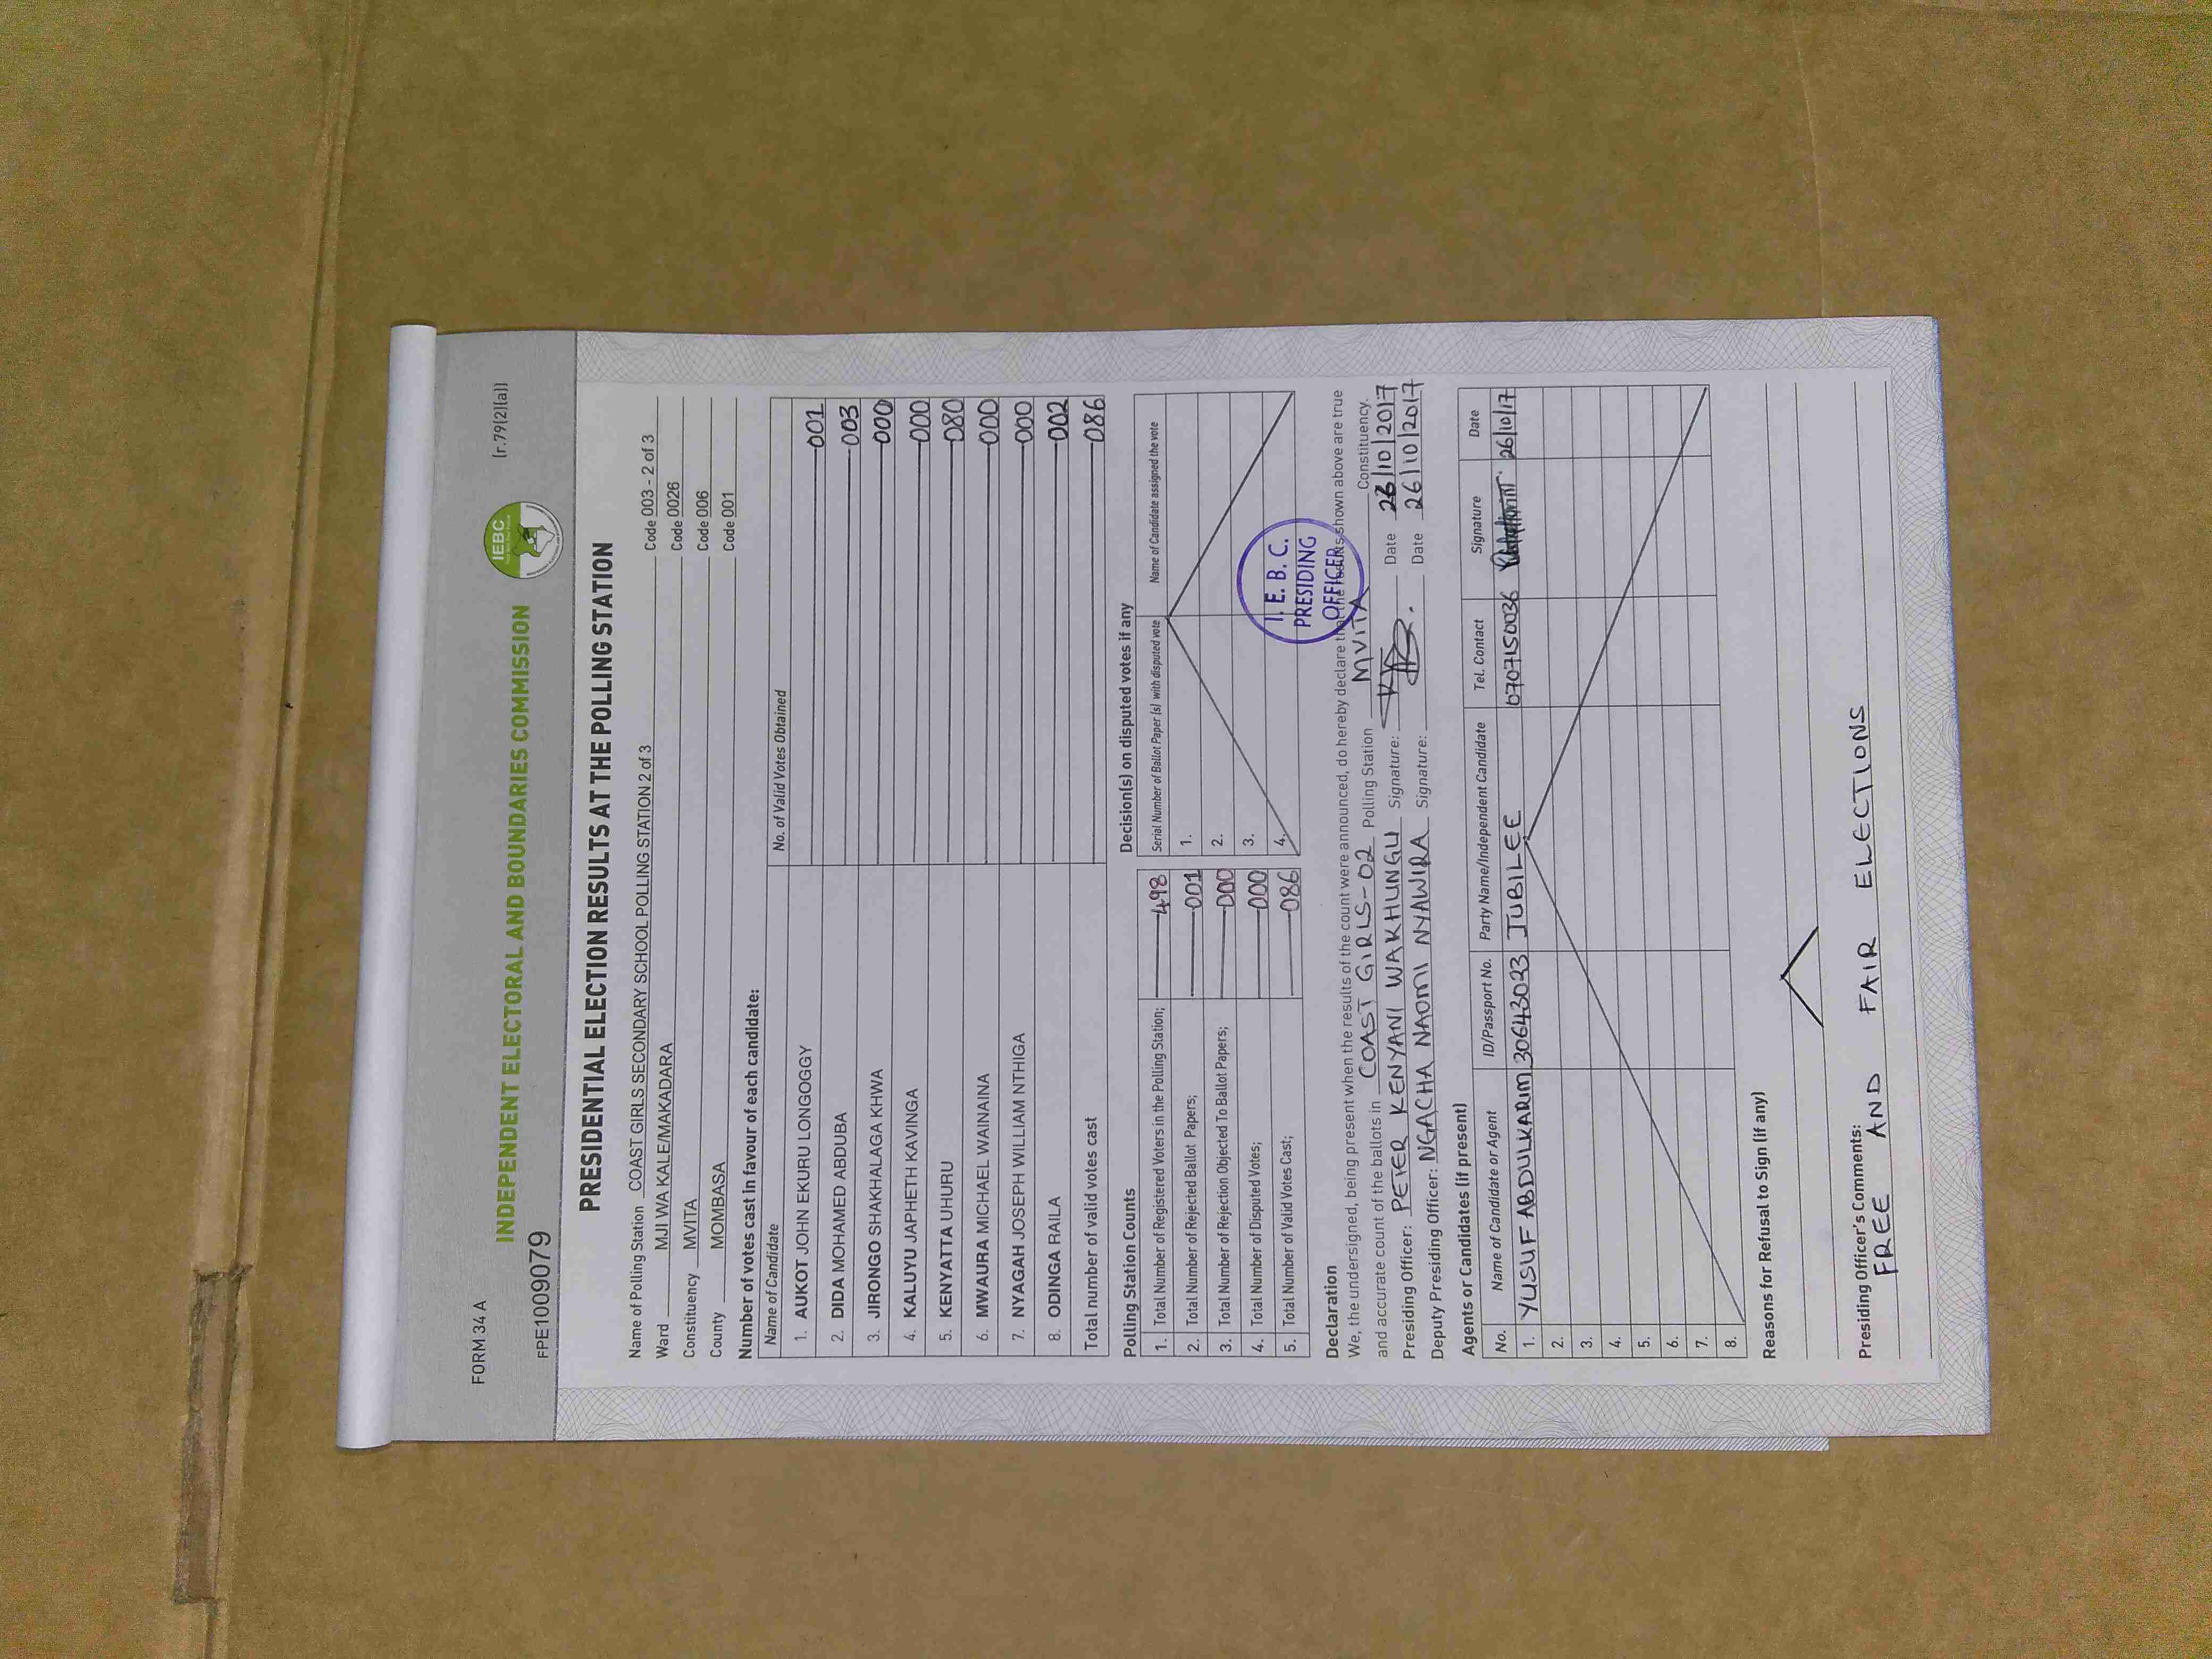 FORM 34 A
(r.79(2)(a))
INDEPENDENT ELECTORAL AND BOUNDARIES COMMISSION
IEBC
FPE1009079
PRESIDENTIAL ELECTION RESULTS AT THE POLLING STATION
Name of Polling Station COAST GIRLS SECONDARY SCHOOL POLLING STATION 2 of 3 Code 003 - 2 of 3
Ward MJI WA KALE/MAKADARA Code 0026
Constituency MVITA Code 006
County MOMBASA Code 001
Number of votes cast in favour of each candidate:
Name of Candidate No. of Valid Votes Obtained
1. AUKOT JOHN EKURU LONGOGGY 001
2. DIDA MOHAMED ABDUBA 003
3. JIRONGO SHAKHALAGA KHWA 000
4. KALUYU JAPHETH KAVINGA 000
5. KENYATTA UHURU 080
6. MWAURA MICHAEL WAINAINA 000
7. NYAGAH JOSEPH WILLIAM NTHIGA 000
8. ODINGA RAILA 002
Total number of valid votes cast 086
Polling Station Counts
1. Total Number of Registered Voters in the Polling Station; 498
2. Total Number of Rejected Ballot Papers; 001
3. Total Number of Rejection Objected To Ballot Papers; 000
4. Total Number of Disputed Votes; 000
5. Total Number of Valid Votes Cast; 086
Decision(s) on disputed votes if any
Serial Number of Ballot Paper (s) with disputed vote Name of Candidate assigned the vote
1.
2.
3.
4.
I. E. B. C.
PRESIDING
OFFICER
Declaration
We, the undersigned, being present when the results of the count were announced, do hereby declare that the results shown above are true
and accurate count of the ballots in COAST GIRLS-02 Polling Station MVITA Constituency.
Presiding Officer: PETER KENYANI WAKHUNGU Signature: Date 26/10/2017
Deputy Presiding Officer: NGACHA NAOMI NYAWIRA Signature: Date 26/10/2017
Agents or Candidates (if present)
No. Name of Candidate or Agent ID/Passport No. Party Name/Independent Candidate Tel. Contact Signature Date
1. YUSUF ABDULKARIM 30643023 JUBILEE 0707150036 26/10/17
2.
3.
4.
5.
6.
7.
8.
Reasons for Refusal to Sign (if any)
Presiding Officer's Comments:
FREE AND FAIR ELECTIONS